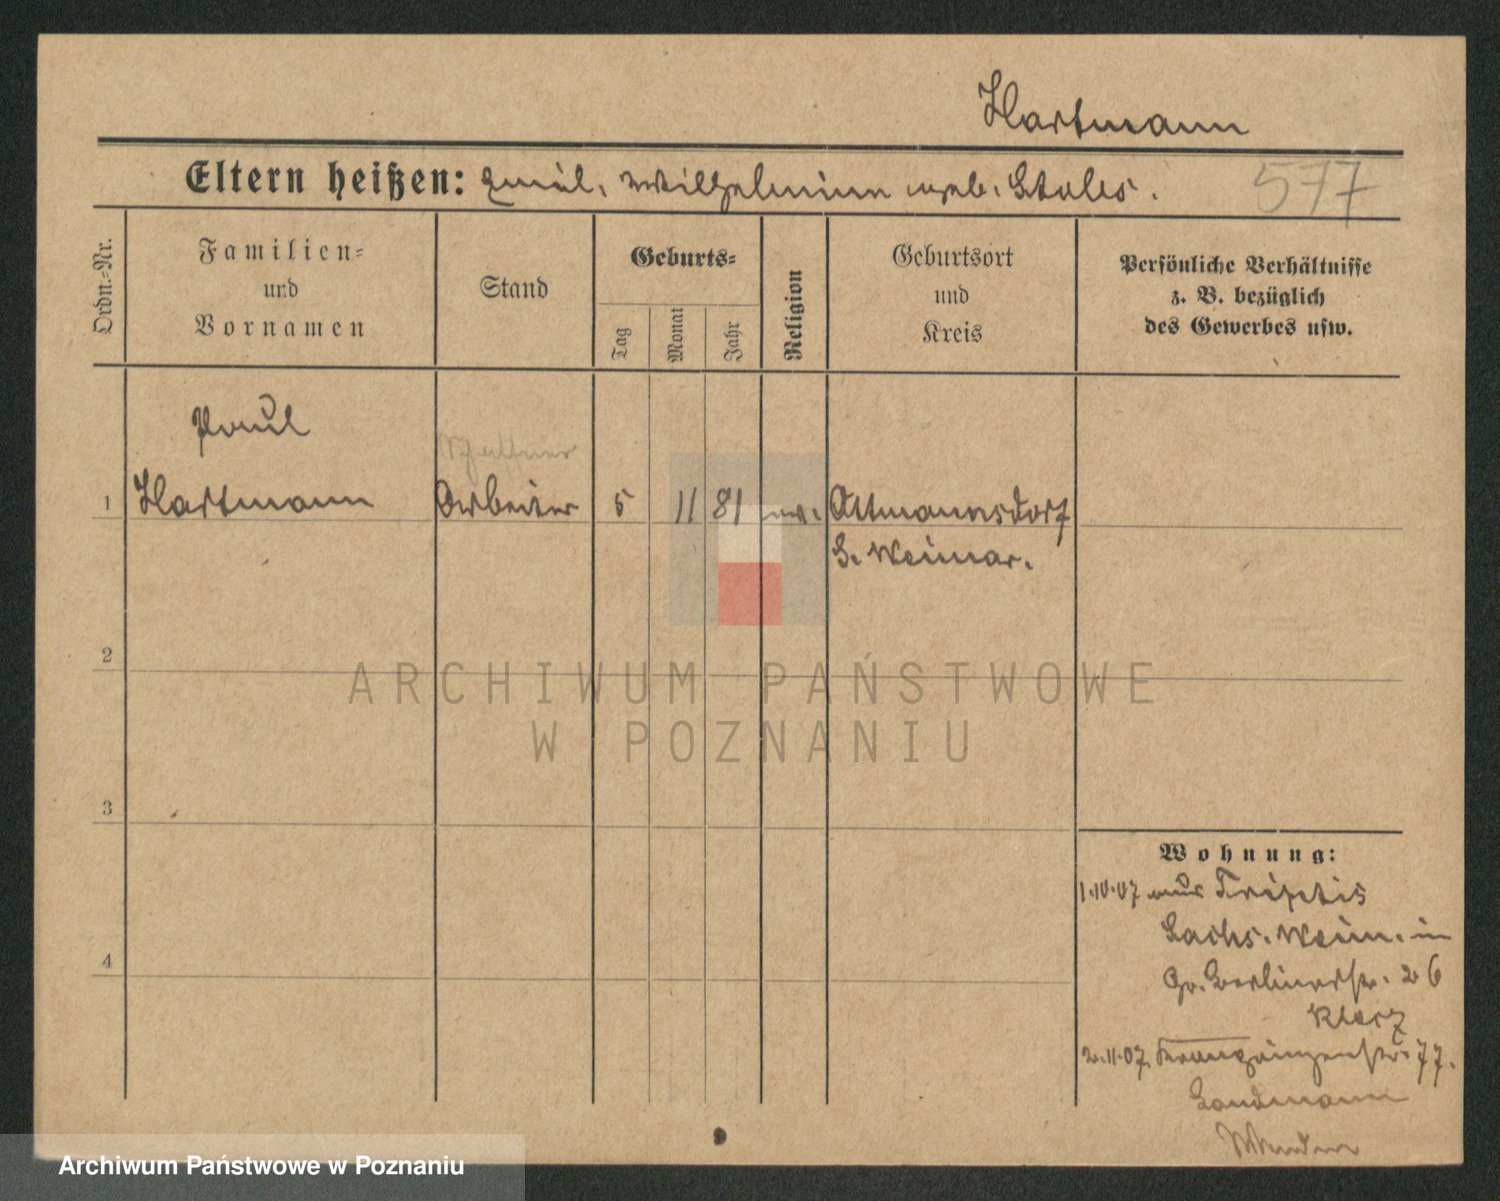 Hartmann
Eltern heißen: Emil, Wilhelmine geb.
577
Ordn.-Nr.
Familien-
und
Vornamen
Stand
Geburts-
Tag
Monat
Jahr
Religion
Geburtsort
und
Kreis
Persönliche Verhältnisse
z. B. bezüglich
des Gewerbes usw.
Paul
1 Hartmann Arbeiter 5 11 81 ev. Ottmannsdorf
S. Weimar.
2
3
4
ARCHIWUM PAŃSTWOWE
W POZNANIU
Wohnung:
1.10.07 aus Triptis
Sachs. Weim. in
Gr. Berlinerstr. 26
2.11.07. Kronprinzenstr. 77.
Landmann
Archiwum Państwowe w Poznaniu